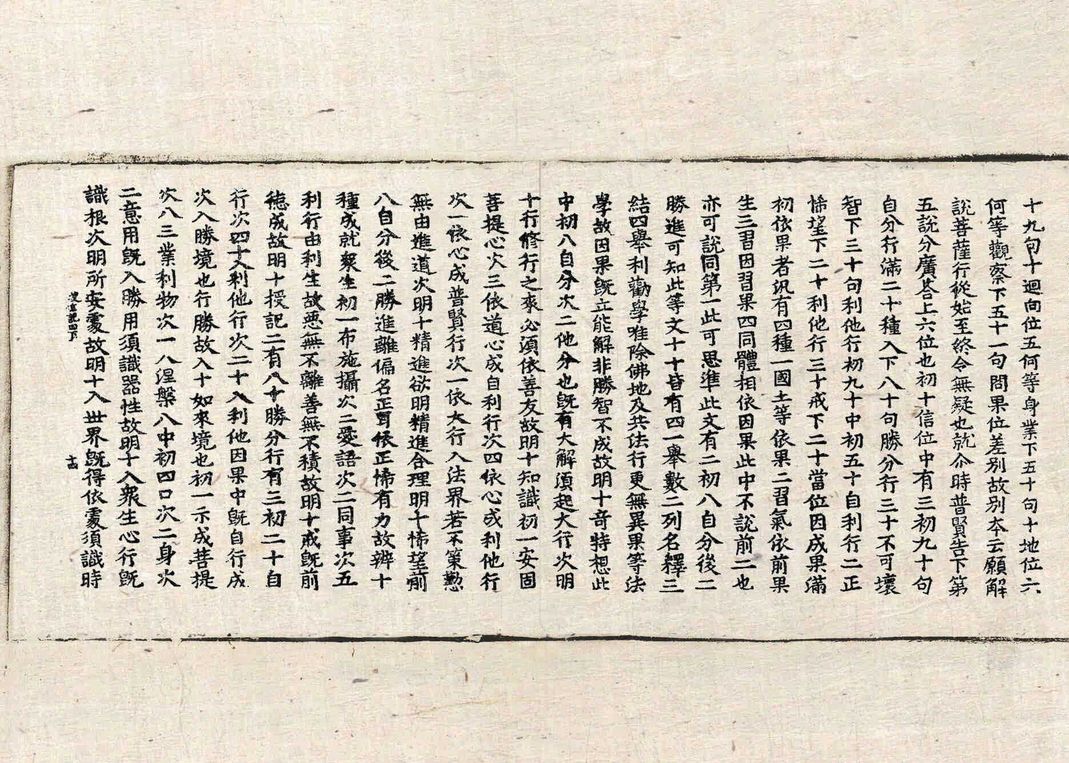 十九句十迴向位五何等身業下五十句十地位六
何等觀察下五十一句問果位差別故別本云願解
說菩薩行從始至終令無疑也就尒時普賢告下第
五說分廣荅上六位也初十信位中有三初九十句
自分行滿二十種入下八十句勝分行三十不可壞
智下三十句利他行初九十中初五十自利行二正
悕望下二十利他行三十戒下二十當位因成果滿
初依果者訊有四種一國土等依果二習氣依前果
生三習因習果四同體相依因果此中不說前二也
亦可說同第一此可思准此文有二初八自分後二
勝進可知此等文十十皆有四一舉數二列名釋三
結四舉利勸學唯除佛地及共法行更無異果等法
學故因果旣立能解非勝智不成故明十奇特想此
中初八自分次二他分也旣有大解須起大行次明
十行修行之來必須依善友故明十知識初一安固
菩提心次三依道心成自利行次四依心成利他行
次一依心成普賢行次一依大行入法界若不策懃
無由進道次明十精進欲明精進合理明十悕望前
八自分後二勝進離偏名正有依正悕有力故辨十
種成就衆生初一布施攝次二愛語次二同事次五
利行由利生故惡無不離善無不積故明十戒旣前
德成故明十授記二有八十勝分行有三初二十自
行次四十入利他行次二十入利他因果中旣自行成
次入勝境也行勝故入十如來境也初一示成菩提
次八三業利物次一入涅槃八中初四口次二身次
二意用旣入勝用須識器性故明十入衆生心行旣
識根次明所安處故明十入世界旣得依處須識時
十四